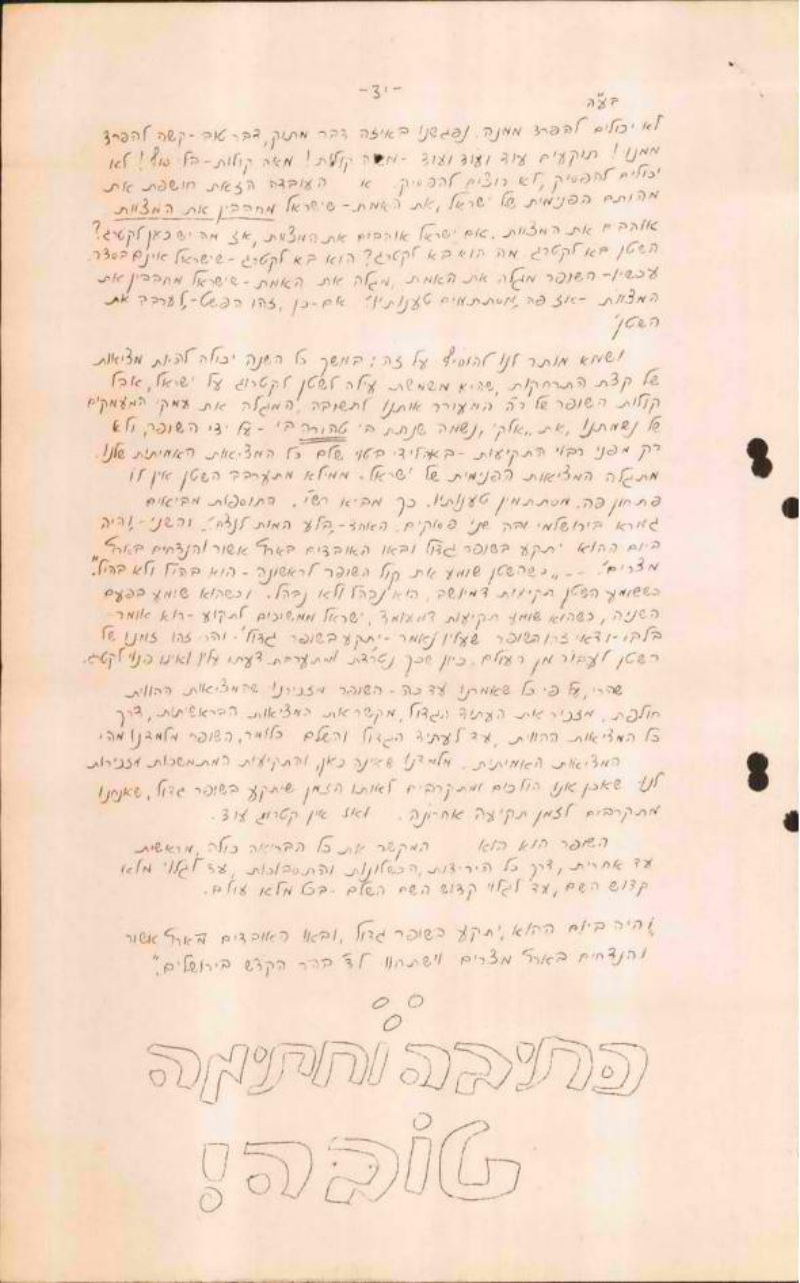 -יד-
בע"ה
לא יכולים להפרד ממנה. נפגשנו באיזה דבר מתוק, דבר טוב - קשה להפרד
ממנו! תוקעים עוד ועוד ועוד - מאה קולות! מאה קולות - בלי סוף! לא
יכולים להפסיק, לא רוצים להפסיק. העובדה הזאת חושפת את
מהותם הפנימית של ישראל, את האמת - שישראל מחבבין את המצוות
אוהבים את המצוות. אם ישראל אוהבים את המצוות, אז מה יש כאן לקטרג?
השטן בא לקטרג מה הוא בא לקטרג? הוא בא לקטרג - שישראל אינם בסדר.
עכשיו - השופר מגלה את האמת, מגלה את האמת - שישראל מחבבין את
המצוות - אז פה "מסתתמים טענותיו" אם-כן, זהו הפשט - "לערבב את
השטן"
ושמא מותר לנו להוסיף על זה: במשך כל השנה יכולה להיות מציאות
של קצת התרחקות, שהיא משמשת עילה לשטן לקטרוג על ישראל, אבל
קולות השופר של ר"ה המעורר אותנו לתשובה, המגלה את עמקי המעמקים
של נשמתנו, את "אלקי, נשמה שנתת בי טהורה היא" - על ידי השופר, ולא
רק מפני רבוי התקיעות - באה לידי בטוי שלם כל המציאות האמיתית שלנו.
מתגלה המציאות הפנימית של ישראל - ממילא מתערבב השטן אין לו
פתחון פה. מסתתמין טענותיו. כך מביא רש"י. התוספות מביאים
גמרא בירושלמי ובה שני פסוקים. האחד - "בלע המות לנצח". והשני - "והיה
ביום ההוא יתקע בשופר גדול ובאו האובדים בארץ אשור והנדחים בארץ
מצרים". --- "כשהשטן שומע את קול השופר לראשונה - הוא בהיל ולא בהיל".
כששומע השטן תקיעות דמיושב, הוא נבהל ולא נבהל. וכשהוא שומע בפעם
השניה, כשהוא שומע תקיעות דמעומד, ישראל ממשיכים לתקוע - הוא אומר
בלבו - ודאי זהו השופר שעליו נאמר - "יתקע בשופר גדול" - והרי זהו זמנו של
השטן לעבור מן העולם. כיון שכך נטרדת ומתערבת דעתו עליו ואינו פנוי לקטרג.
שהרי, על פי כל שאמרנו עד כה - השופר מזכירנו שהמציאות ההווית
חולפת. מזכיר את העתיד הגדול, מקשר את המציאות הבראשיתית, דרך
כל המציאות ההווית, עד לעתיד הגדול והשלם כלומר, השופר מלמדנו מהי
המציאות האמיתית. מלמדנו שאינה כאן, והתקיעות המתמשכות מזכירות
לנו שאכן אנו הולכים ומתקרבים לאותו הזמן שיתקע בשופר גדול, שאנחנו
מתקרבים לזמן תקיעה אחרונה. ואז אין קטרוג עוד.
השופר הוא הוא המקשר את כל הבריאה כולה, מראשית
עד אחרית, דרך כל הירידות, הכשלונות והתסבוכות, עד לגלוי מלא
קדוש השם, עד לגלוי קדוש השם השלם - בכל מלא עולם.
"והיה ביום ההוא, יתקע בשופר גדול, ובאו האובדים בארץ אשור
והנדחים בארץ מצרים וישתחוו לד' בהר הקדש בירושלים."
כתיבה וחתימה
טובה!